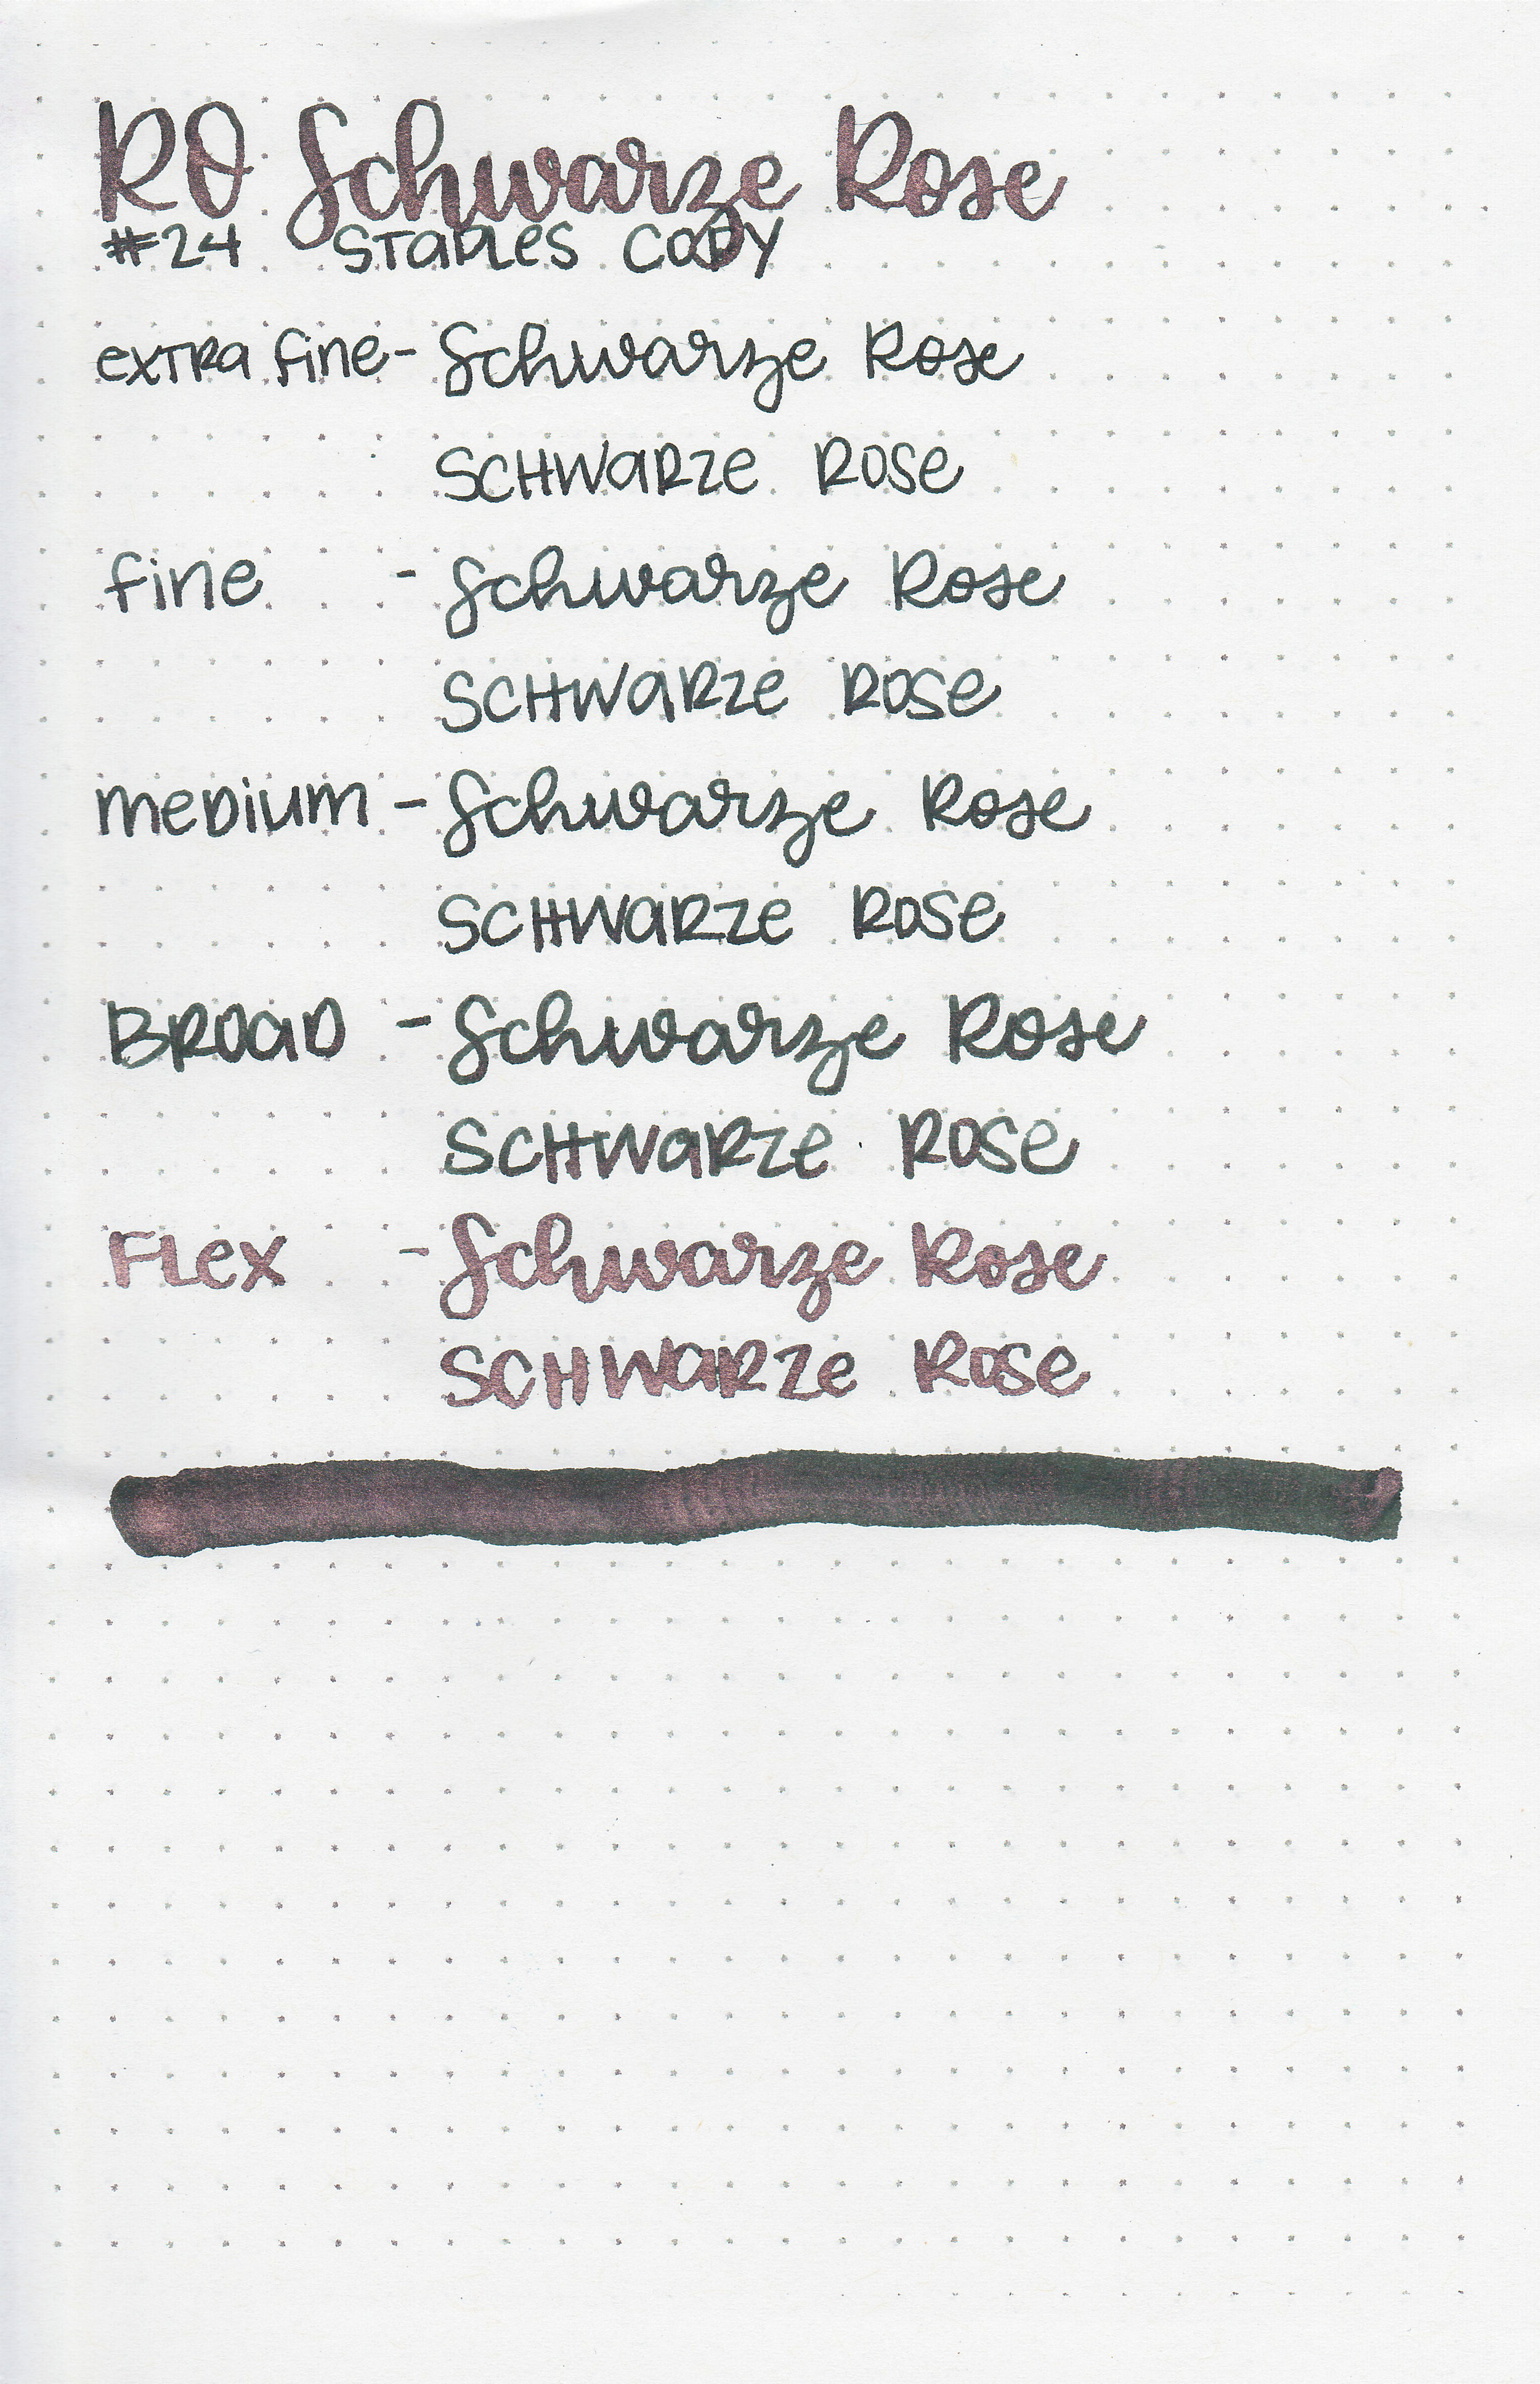 RO Schwarze Rose
#24 STAPLES COPY
extra fine - Schwarze Rose
SCHWARZE ROSE
fine - Schwarze Rose
SCHWARZE ROSE
medium - Schwarze Rose
SCHWARZE ROSE
BROAD - Schwarze Rose
SCHWARZE ROSE
FLEX - Schwarze Rose
SCHWARZE ROSE